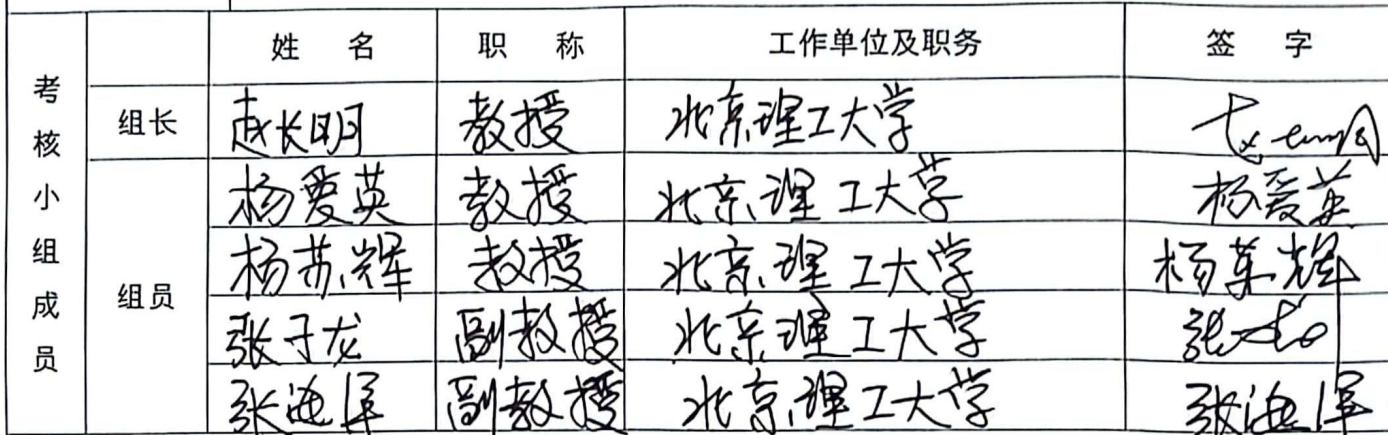 考核小组成员
姓 名 职 称 工作单位及职务 签 字
组长 赵长明 教授 北京理工大学
组员
杨爱英 教授 北京理工大学 杨爱英
杨苏辉 教授 北京理工大学 杨苏辉
张子龙 副教授 北京理工大学
张海洋 副教授 北京理工大学 张海洋